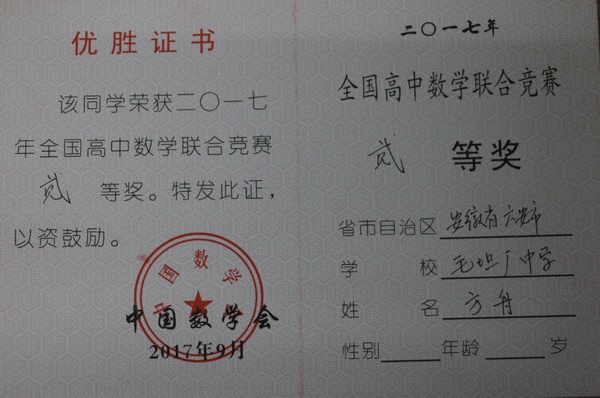 优胜证书
该同学荣获二〇一七
年全国高中数学联合竞赛
贰 等奖。特发此证，
以资鼓励。
中国数学会
中国数学会
2017年9月
二〇一七年
全国高中数学联合竞赛
贰 等奖
省市自治区 安徽省六安市
学 校 毛坦厂中学
姓 名 方舟
性别 年龄 岁